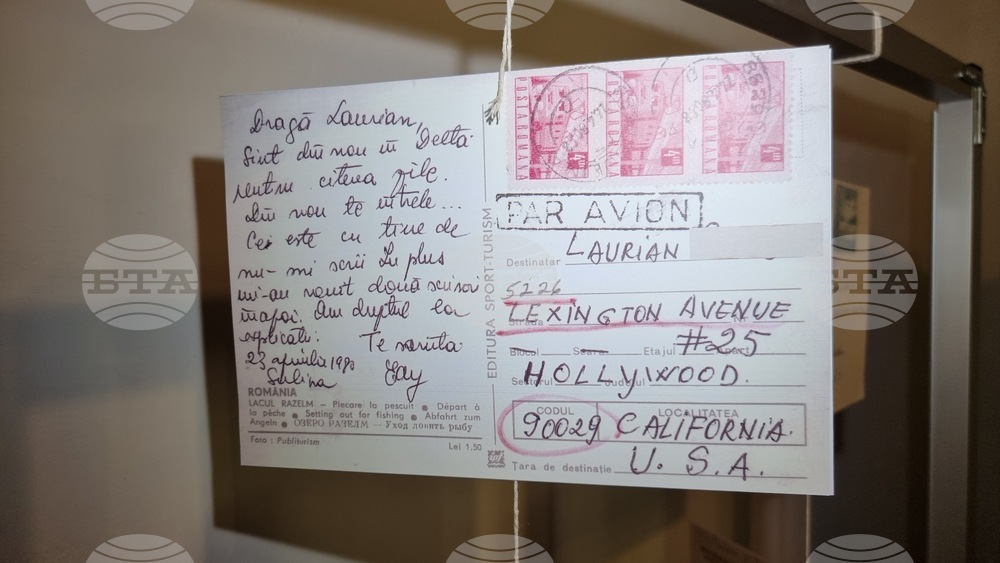 Dragă Laurian,
Sînt din nou în Delta
pentru citeva zile.
Din nou te întreb...
Ce este cu tine de
nu-mi scrii În plus
mi-au venit două scrisori
înapoi. Am dreptul la
explicații. Te sărută
23 aprilie 1980
Sulina
ROMÂNIA
LACUL RAZELM — Plecare la pescuit ● Départ à
la pêche ● Setting out for fishing ● Abfahrt zum
Angeln ● ОЗЕРО РАЗЕЛМ — Уход ловить рыбу
Foto : Publiturism
Lei 1.50
EDITURA SPORT-TURISM
POSTA ROMANA
POSTA ROMANA
POSTA ROMANA
PAR AVION
Destinatar LAURIAN
5226
Strada LEXINGTON AVENUE
Blocul Scara Etajul Apart. #25
Sectorul Judeţul HOLLYWOOD.
CODUL LOCALITATEA
90029 CALIFORNIA.
Ţara de destinaţie U. S. A.
БТА
БТА
БТА